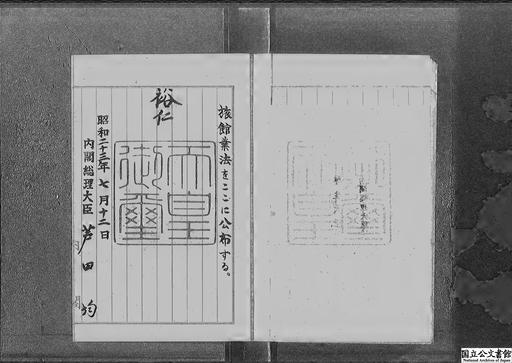 旅館業法をここに公布する。
裕仁
天皇御璽
昭和二十三年七月十二日
内閣総理大臣 芦田均
国立公文書館
National Archives of Japan